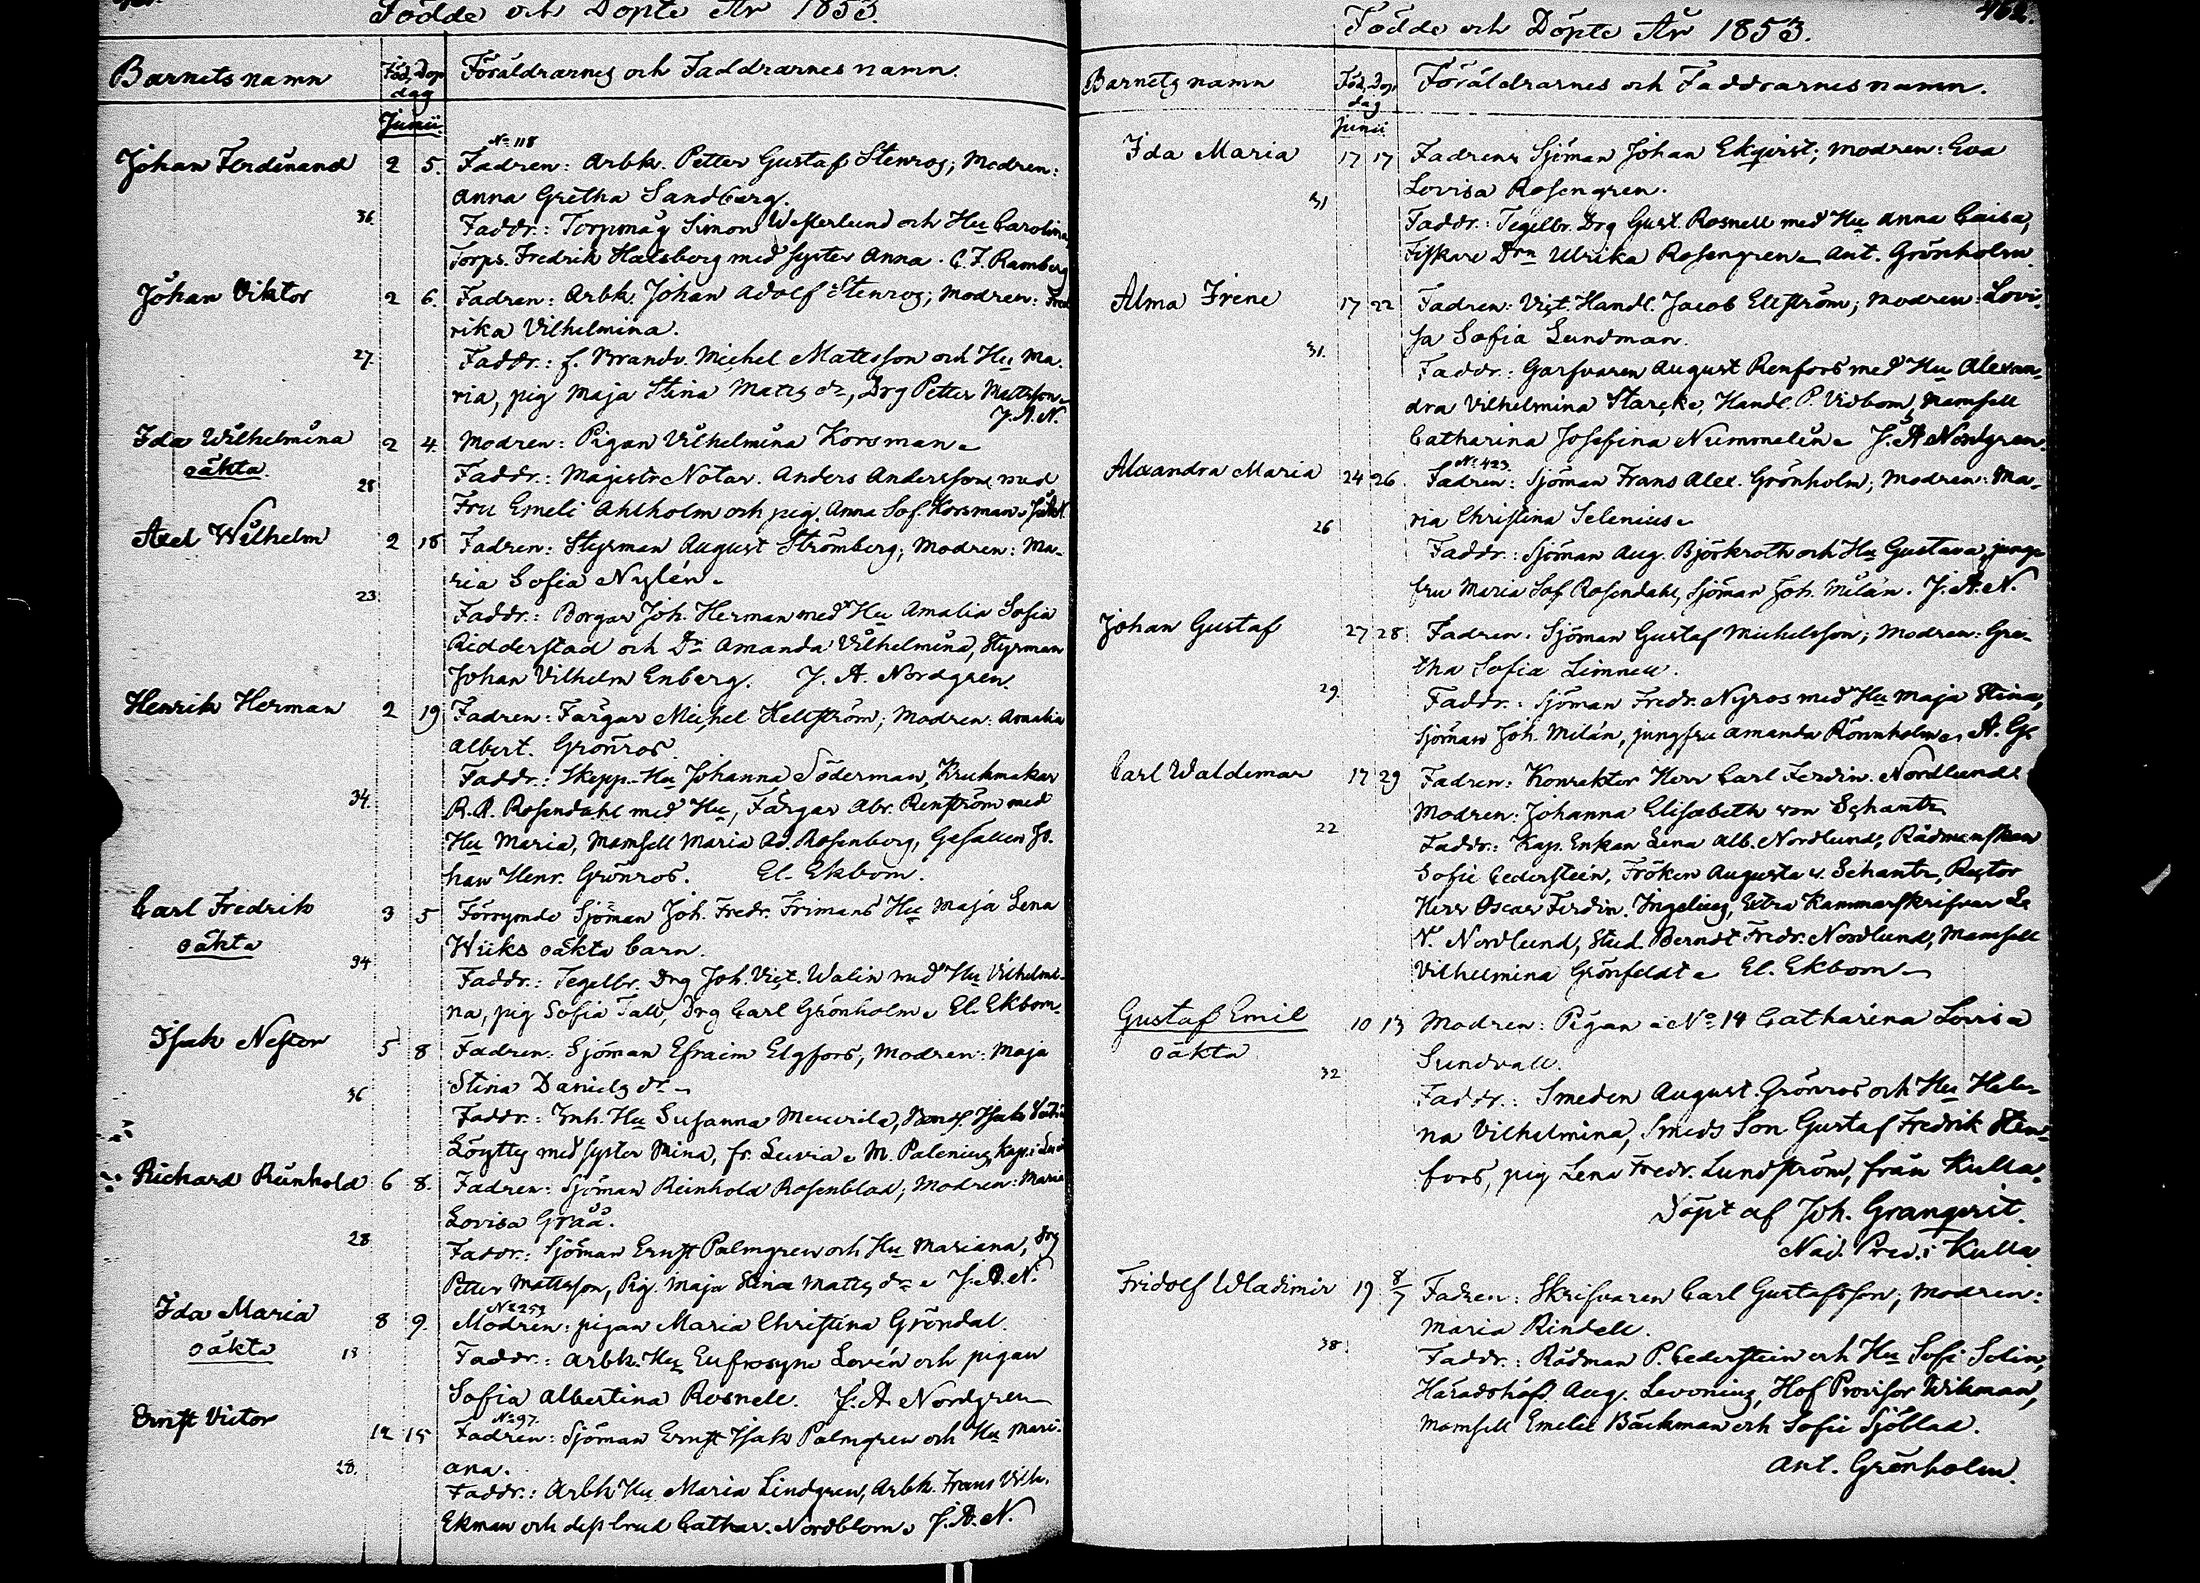 Födde och Döpte År 1853.
Barnets namn Föd. Dop. Föräldrarnes och Faddrarnes namn.
dag
Junii.
No 118
Johan Ferdinand 2 5. Fadren: Arbk. Petter Gustaf Stenros; Modren:
Anna Gretha Sandberg.
36. Faddr.: Torpmåg Simon Westerlund och Hu Carolina,
Torps. Fredrik Halsberg med syster Anna. C. F. Ramberg
Johan Viktor 2 6. Fadren: Arbk. Johan Adolf Stenros; Modren: Fred
rika Vilhelmina.
27. Faddr.: f. Brandv. Michel Mattsson och Hu Ma-
ria, pig Maja Stina Matts dr, Drg Petter Mattsson
J. A. N.
Ida Wilhelmina 2 4. Modren: Pigan Vilhelmina Korsman.
oäkta
28 Faddr.: Magistr. Notar. Anders Andersson med
Fru Emeli Ahlholm och pig. Anna Sof. Korsman. J. A. N.
Axel Wilhelm 2 18 Fadren: Styrman August Strömberg; Modren: Ma-
ria Sofia Nylén.
23. Faddr.: Borgar Joh. Herman med Hu Amalia Sofia
Ridderstad och Dr Amanda Vilhelmina, Styrman
Johan Vilhelm Enberg. J. A. Nordgren.
Henrik Herman 2 19 Fadren: Färgar Michel Hellström; Modren: Amalia
Albert. Grönros.
Faddr.: Skepp. Hu Johanna Söderman, Krukmakar
34. R. R. Rosendahl med Hu, Färgar Abr. Renström med
Hu Maria, Mamsell Maria Ad. Rosenberg, Gesällen Jo-
han Henr. Grönros. El. Ekbom.
Carl Fredrik 3 5 Förrymde Sjöman Joh. Fredr. Frimans Hu Maja Lena
oäkta Wiiks oäkta barn.
34 Faddr.: Tegelbr. Drg Joh. Vict. Walin med Hu Vilhelmi-
na, pig Sofia Tall, Drg Carl Grönholm. El. Ekbom.
Isak Nestor 5 8 Fadren: Sjöman Efraim Elgfors, Modren: Maja
Stina Daniels dr
36 Faddr.: Inh. Hu Susanna Meurila, Bonds. Isak
Löytty med syster Mina, fr. Luvia. M. Palenius, Kap. i
Richard Reinhold 6 8. Fadren: Sjöman Reinhold Rosenblad; Modren: Maria
Lovisa Gråå.
28 Faddr.: Sjöman Ernst Palmgren och Hu Mariana, Drg
Petter Mattsson, Pig. Maja Stina Matts dr. J. A. N.
No 259
Ida Maria 8 9. Modren: pigan Maria Christina Gröndal.
oäkta 13 Faddr.: Arbk. Hu Eufrosyne Lovén och pigan
Sofia Albertina Rosnell. J. A. Nordgren
No 97.
Ernst Victor 12 15 Fadren: Sjöman Ernst Isak Palmgren och Hu Mari-
ana.
28. Faddr.: Arbk Hu Maria Lindgren, Arbk. Frans Vilh.
Ekman och dess brud Cathar. Nordblom. J. A. N.
462.
Födde och Döpte År 1853.
Barnets namn Föd. Dop. Föräldrarnes och Faddrarnes namn.
dag
Junii
Ida Maria 17 17 Fadren: Sjöman Johan Ekqvist; Modren: Eva
Lovisa Rosengren.
31 Faddr.: Tegelbr. Drg Gust. Rosnell med Hu Anna Caisa,
Fiskare Drn Ulrika Rosengren. Ant. Grönholm.
Alma Irene 17 22 Fadren: Vict. Handl. Jacob Ellström; Modren: Lovi-
sa Sofia Lundman.
31. Faddr.: Garfvaren August Renfors med Hu Alexan-
dra Vilhelmina Starcke, Handl. P. Vidbom, Mamsell
Catharina Josefina Nummelin. J. A. Nordgren.
No 423.
Alexandra Maria 24 26. Fadren: Sjöman Frans Alex. Grönholm; Modren: Ma-
ria Christina Selenius.
26 Faddr.: Sjöman Aug. Björkroth och Hu Gustava, jung-
fru Maria Sof. Rosendahl, Sjöman Joh. Milán. J. A. N.
Johan Gustaf 27 28 Fadren: Sjöman Gustaf Michelsson; Modren: Gre-
tha Sofia Limnell.
29. Faddr.: Sjöman Fredr. Nyros med Hu Maja Stina,
Sjöman Joh. Milán, jungfru Amanda Rönnholm. A. G.
Carl Waldemar 17 29 Fadren: Konrektor Herr Carl Ferdin. Nordlund
Modren: Johanna Elisabeth von Schantz
22 Faddr.: Kap. Enkan Lena Alb. Nordlund, Rådmanskan
Sofie Cederstein, Fröken Augusta v. Schantz, Rector
Herr Oscar Ferdin. Ingelius, Extra Kammarskrifvar
V. Nordlund, Stud. Berndt Fredr. Nordlund, Mamsell
Vilhelmina Grönfeldt. El. Ekbom
Gustaf Emil 10 13 Modren: Pigan å No 14 Catharina Lovisa
oäkta Sundvall.
32 Faddr.: Smeden August. Grönros och Hu Hele-
na Vilhelmina, Smeds Son Gustaf Fredrik Sten-
fors, pig Lena Fredr. Lundström, från Kulla.
Döpt af Joh. Granqvist.
Nåd. Pred. i Kulla.
Fridolf Wladimir 19 8/7 Fadren: Skrifvaren Carl Gustafsson; Modren:
Maria Rindell.
38. Faddr.: Rådman P. Cederstein och Hu Sofi Selin,
Häradshöfd. Aug. Levonius, Hof Provisor Wikman,
Mamsell Emelie Bäckman och Sofie Sjöblad.
Ant. Grönholm.